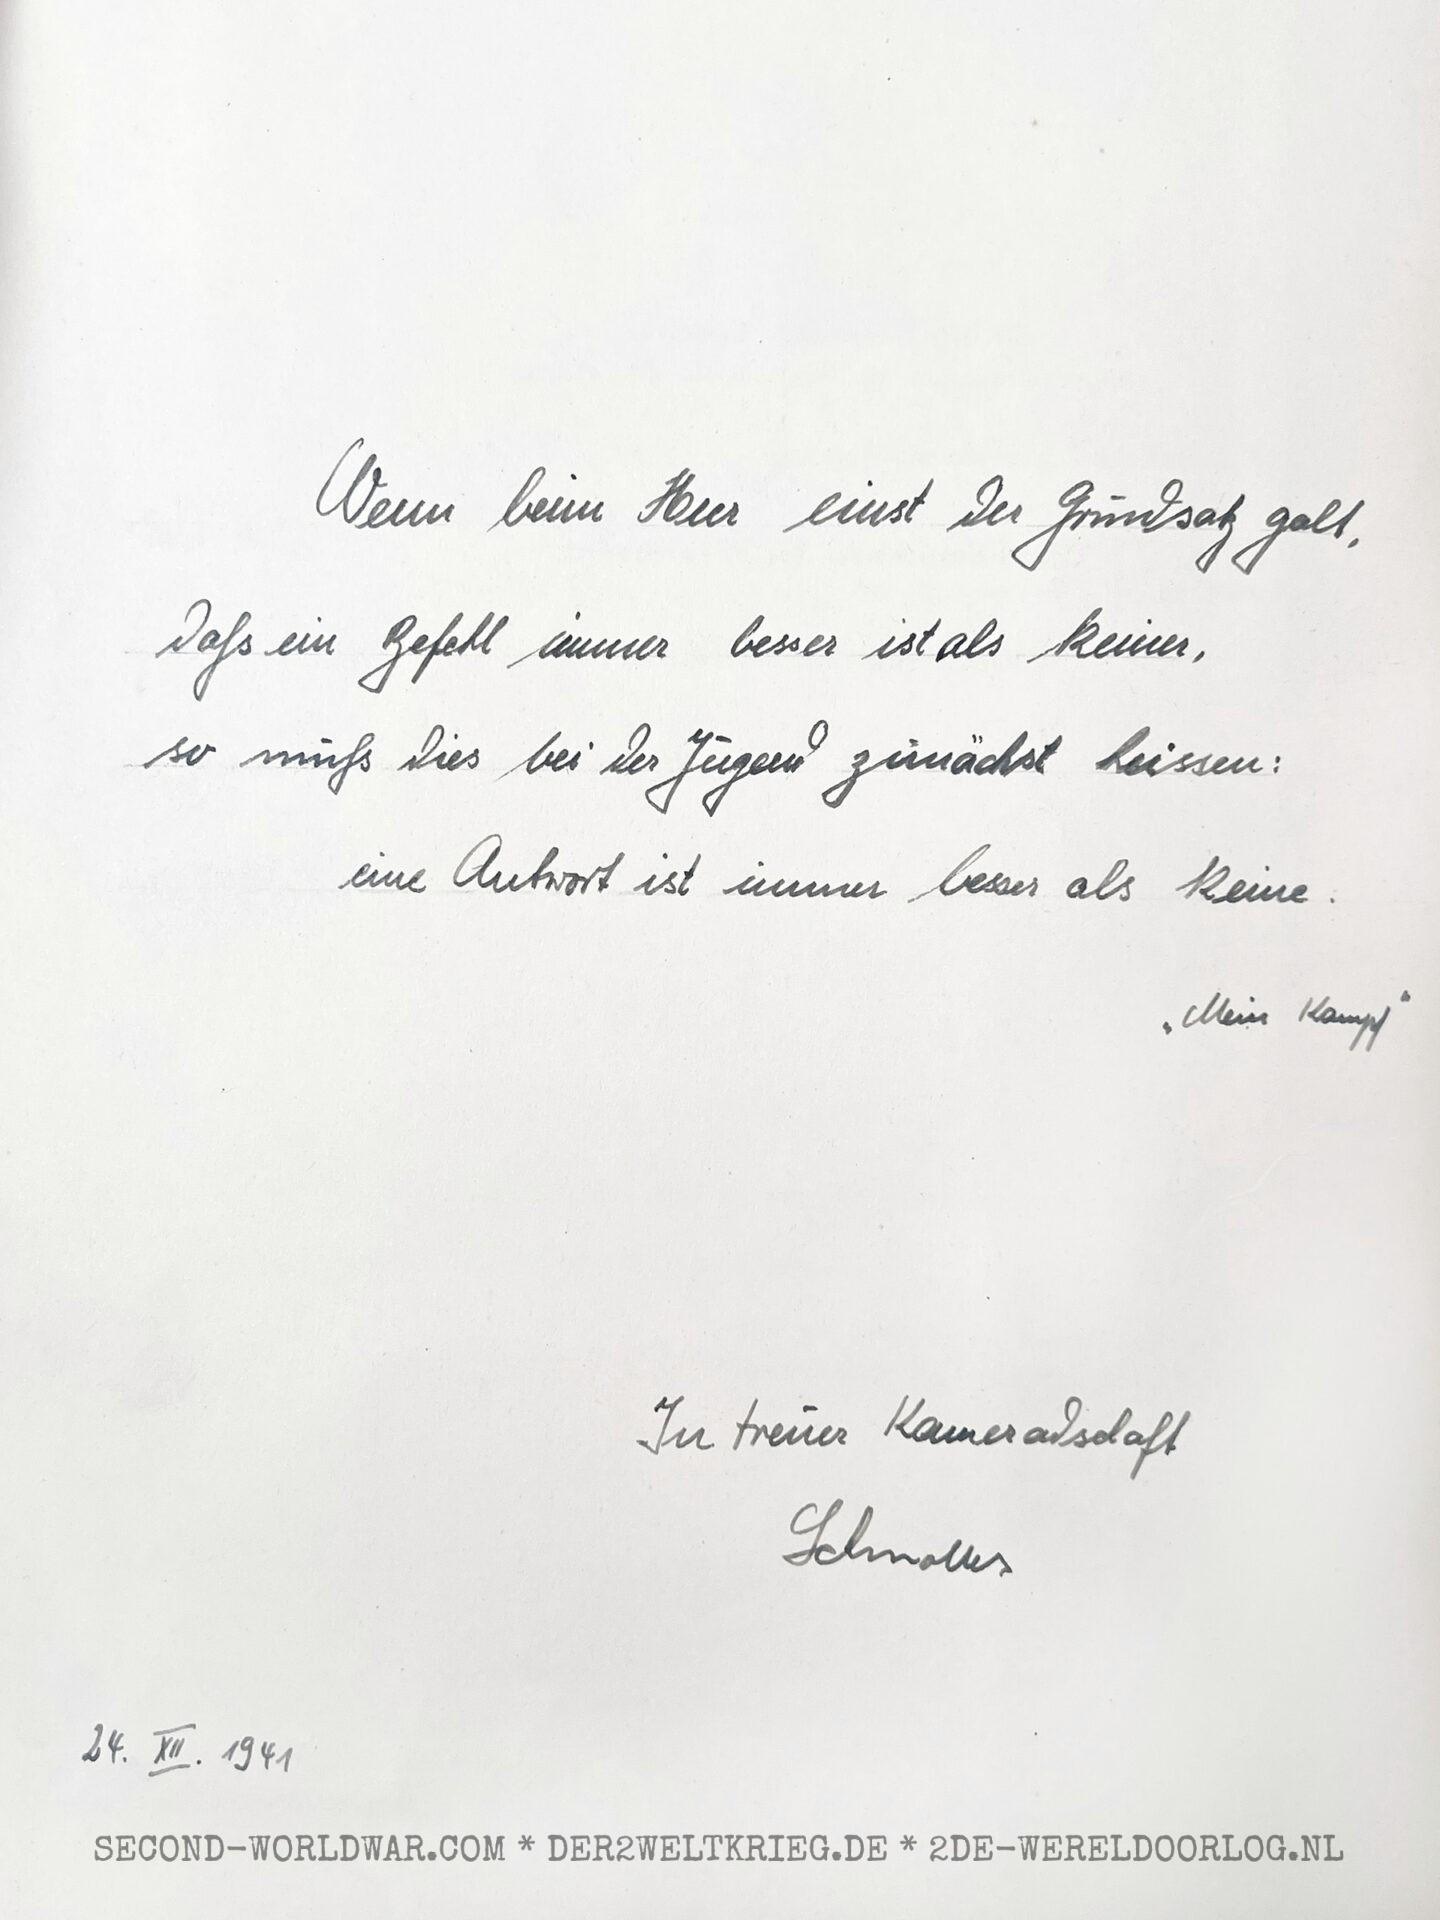 Wenn beim Heer einst der Grundsatz galt,
dass ein Befehl immer besser ist als keiner,
so muss dies bei der Jugend zunächst heissen:
eine Antwort ist immer besser als keine.
„Mein Kampf“
In treuer Kameradschaft
24. XII. 1941
SECOND-WORLDWAR.COM * DER2WELTKRIEG.DE * 2DE-WERELDOORLOG.NL